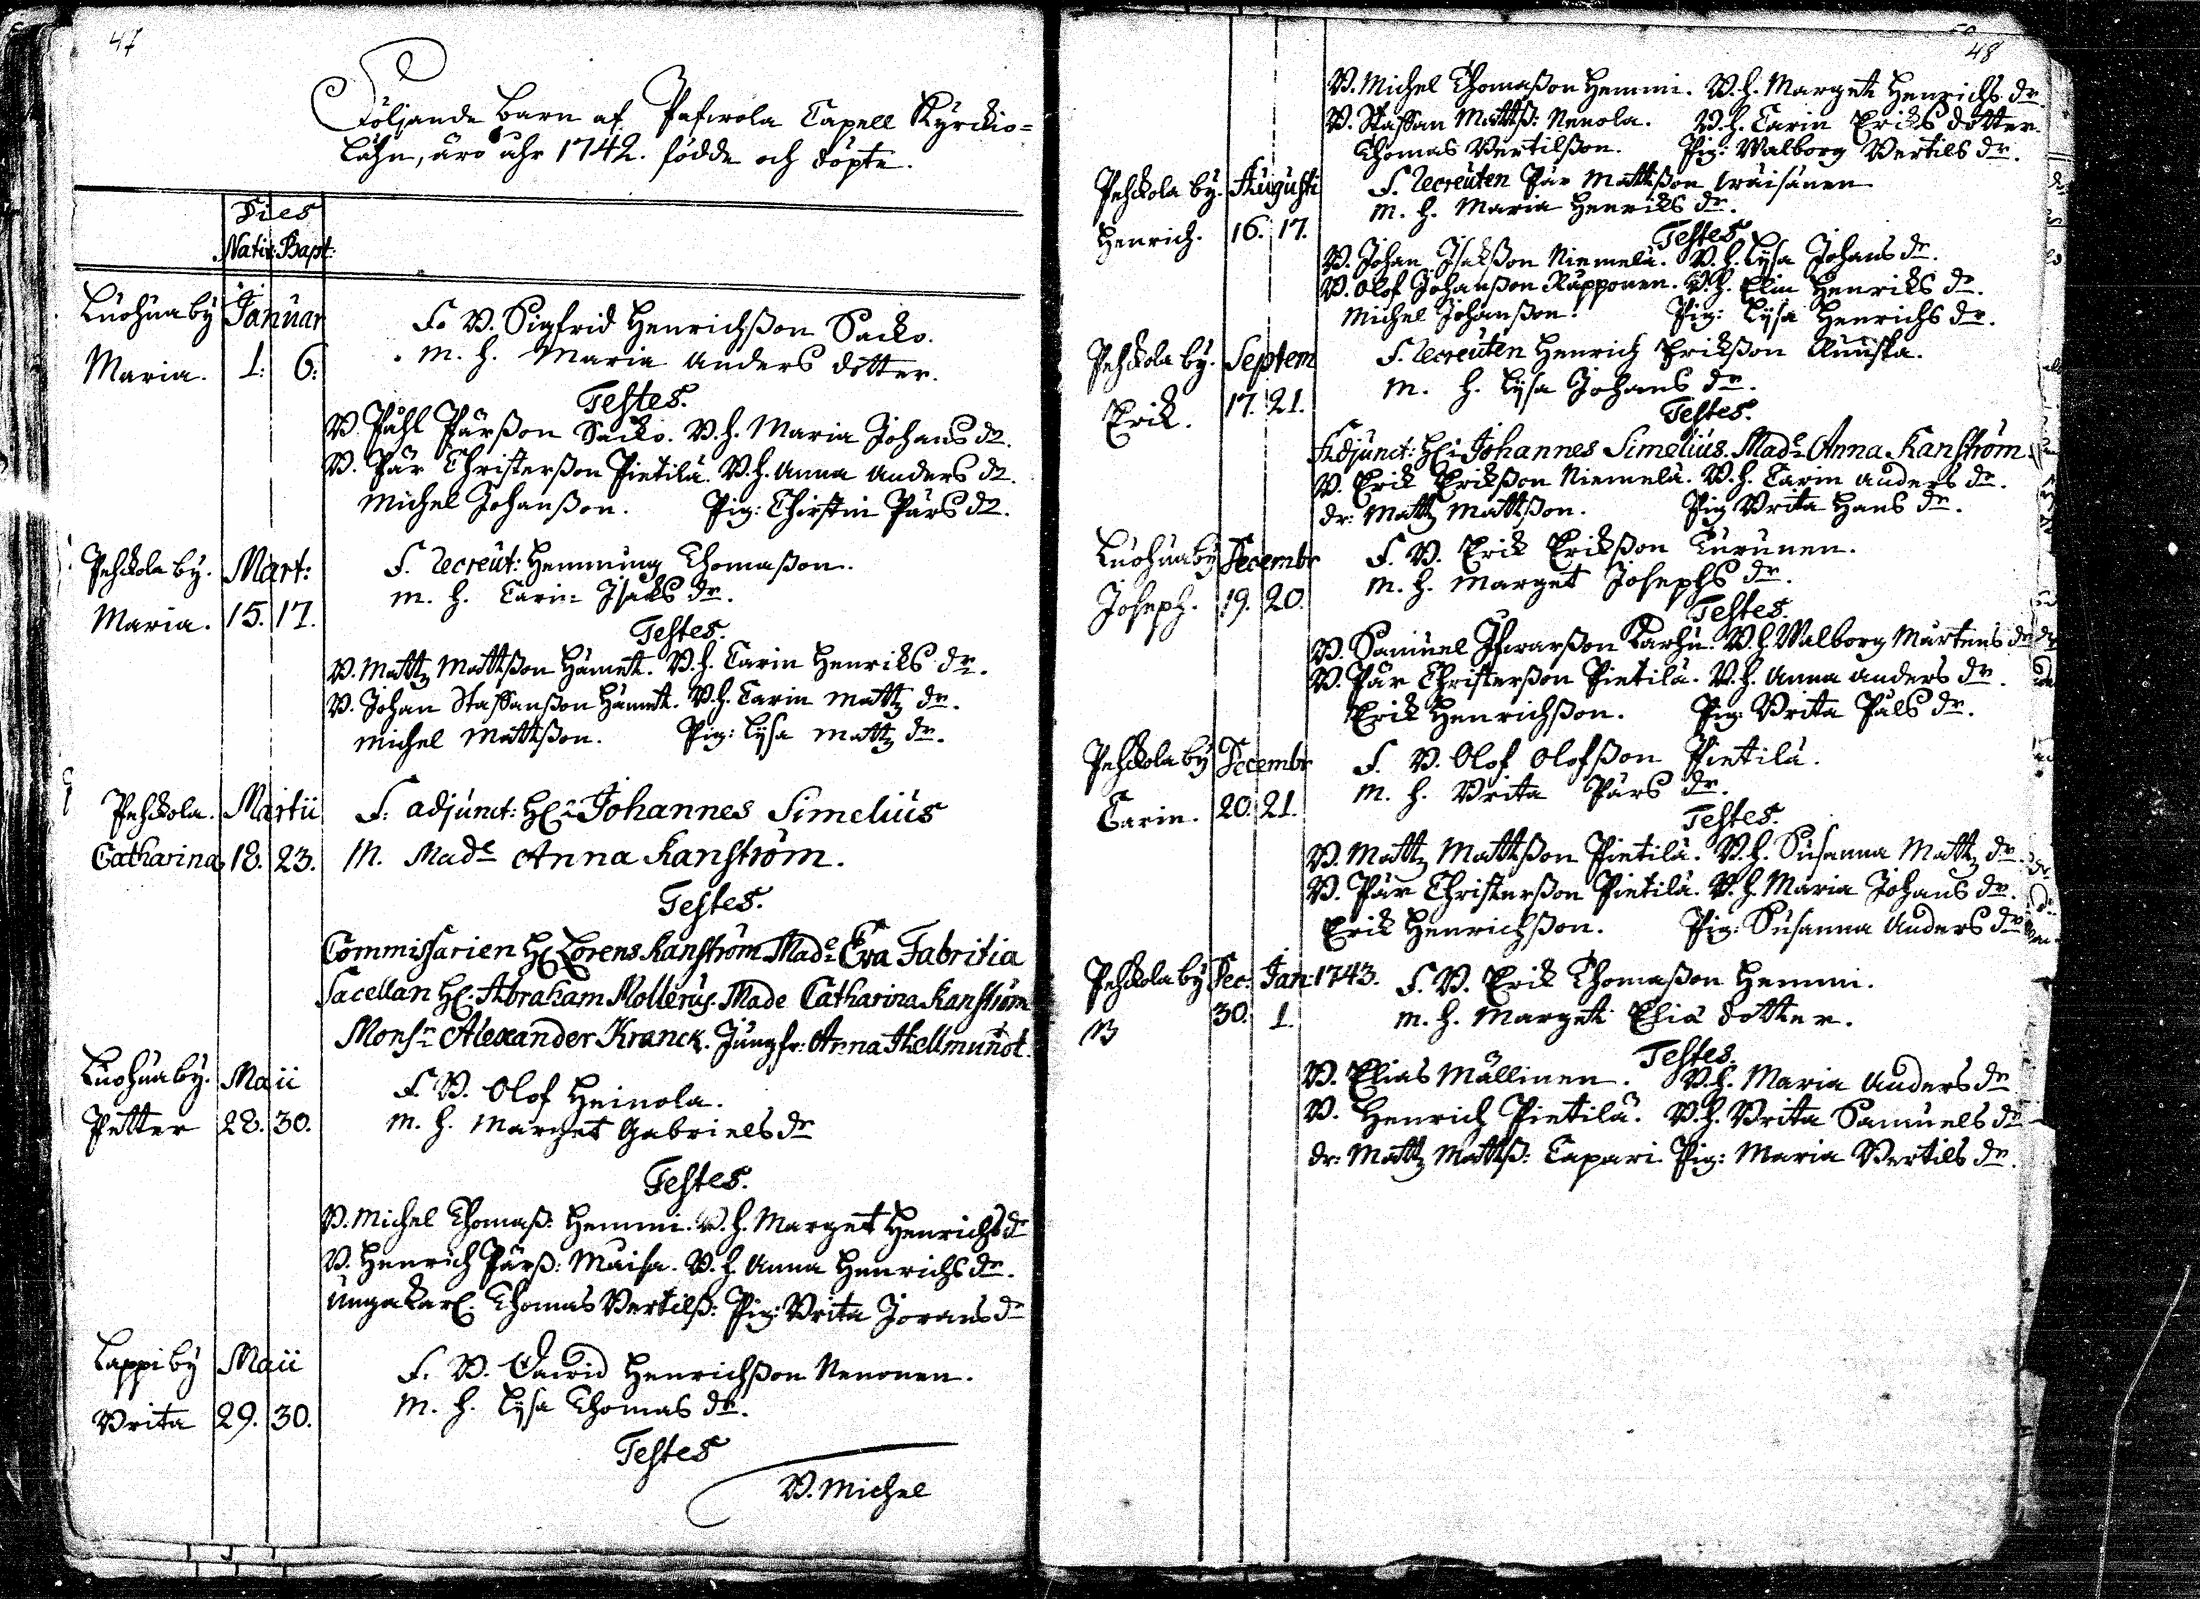 47
Följande Barn af Pafwola Capell Kyrckio=
Lähn, äro åhr 1742. födde och döpte.
Dies
Nativ: Bapt:
Luohua by Januar F. B. Sigfrid Henrichsson Sacko.
Maria. 1. 6. M. H. Maria Anders dotter.
Testes.
B. Påhl Pärsson Sacko. B. H. Maria Johans dr.
B. Pär Christersson Pietilä. B. H. Anna Anders dr.
Michel Johansson. Pig: Chirstin Pärs dr.
Pehkola by. Mart: F. Recreut: Hemming Thomasson.
Maria. 15. 17. M. H. Carin Isaks dr.
Testes.
B. Mattz Mattsson Hämet. B. H. Carin Henriks dr.
B. Johan Staffansson Hämet. B. H. Carin Mattz dr.
Michel Mattsson. Pig: Lysa Mattz dr.
Pehkola. Martii F. adjunct: H:r Johannes Simelius
Catharina 18. 23. M. Mad:e Anna Kanström.
Testes.
Commissarien H: Lorens Kanström Mad:e Eva Fabritia
Sacellan H: Abraham Mollerus. Made Catharina Kanström
Monsr Alexander Kranck. Jungfr: Anna
Luohua by. Maii F. B. Olof Heinola.
Petter 28. 30. M. H. Marget Gabriels dr
Testes.
B. Michel Thomass: Hemmi. B. H. Marget Henrichs dr
B. Henrich Pärss: Maisa. B. H. Anna Henrichs dr.
Unga Karl. Thomas Bertilss: Pig: Brita Jörans dr
Lappi by Maii F. B. David Henrichsson Nenonen.
Brita 29. 30. M. H. Lysa Thomas dr.
Testes
B. Michel
48
B. Michel Thomasson Hemmi. B. H. Marget Henrichs dr.
B. Staffan Mattss: Nenola. B. H. Carin Eriks dotter.
Thomas Bertilsson. Pig: Walborg Bertils dr.
Pehkola by. Augusti F. Recreuten Pär Mattsson
Henrich. 16. 17. M. H. Maria Henriks dr.
Testes
B. Johan Isaksson Niemelä. B. H. Lysa Johans dr.
B. Olof Johansson Kupponen. B. H. Elin Henriks dr.
Michel Johansson. Pig: Lysa Henrichs dr.
Pehkola by. Septem F. Recreuten Henrich Eriksson
Erik. 17. 21. M. H. Lysa Johans dr.
Testes.
Adjunct: H:r Johannes Simelius. Mad:e Anna Kanström
B. Erik Eriksson Niemelä. B. H. Carin Anders dr.
dr: Mattz Mattsson. Pig Brita Hans dr.
Luohua by Decembr F. B. Erik Eriksson Turunen.
Joseph. 19. 20. M. H. Marget Josephs dr.
Testes.
B. Samuel Ifwarsson Karhu. B. H. Walborg Mårtens dr
B. Pär Christersson Pietilä. B. H. Anna Anders dr.
Erik Henrichsson. Pig: Brita Påls dr.
Pehkola by Decembr F. B. Olof Olofsson Pietilä.
Carin. 20. 21. M. H. Brita Pärs dr.
Testes.
B. Mattz Mattsson Pietilä. B. H. Susanna Mattz dr.
B. Pär Christersson Pietilä. B. H. Maria Johans dr.
Erik Henrichsson. Pig: Susanna Anders dr
Pehkola by Dec: Jan: 1743. F. B. Erik Thomasson Hemmi.
30. 1. M. H. Marget Eliä dotter.
Testes.
B. Elias Mällinen. B. H. Maria Anders dr
B. Henrich Pietilä. B. H. Brita Samuels dr
dr: Mattz Mattss: Capari Pig: Maria Bertils dr.